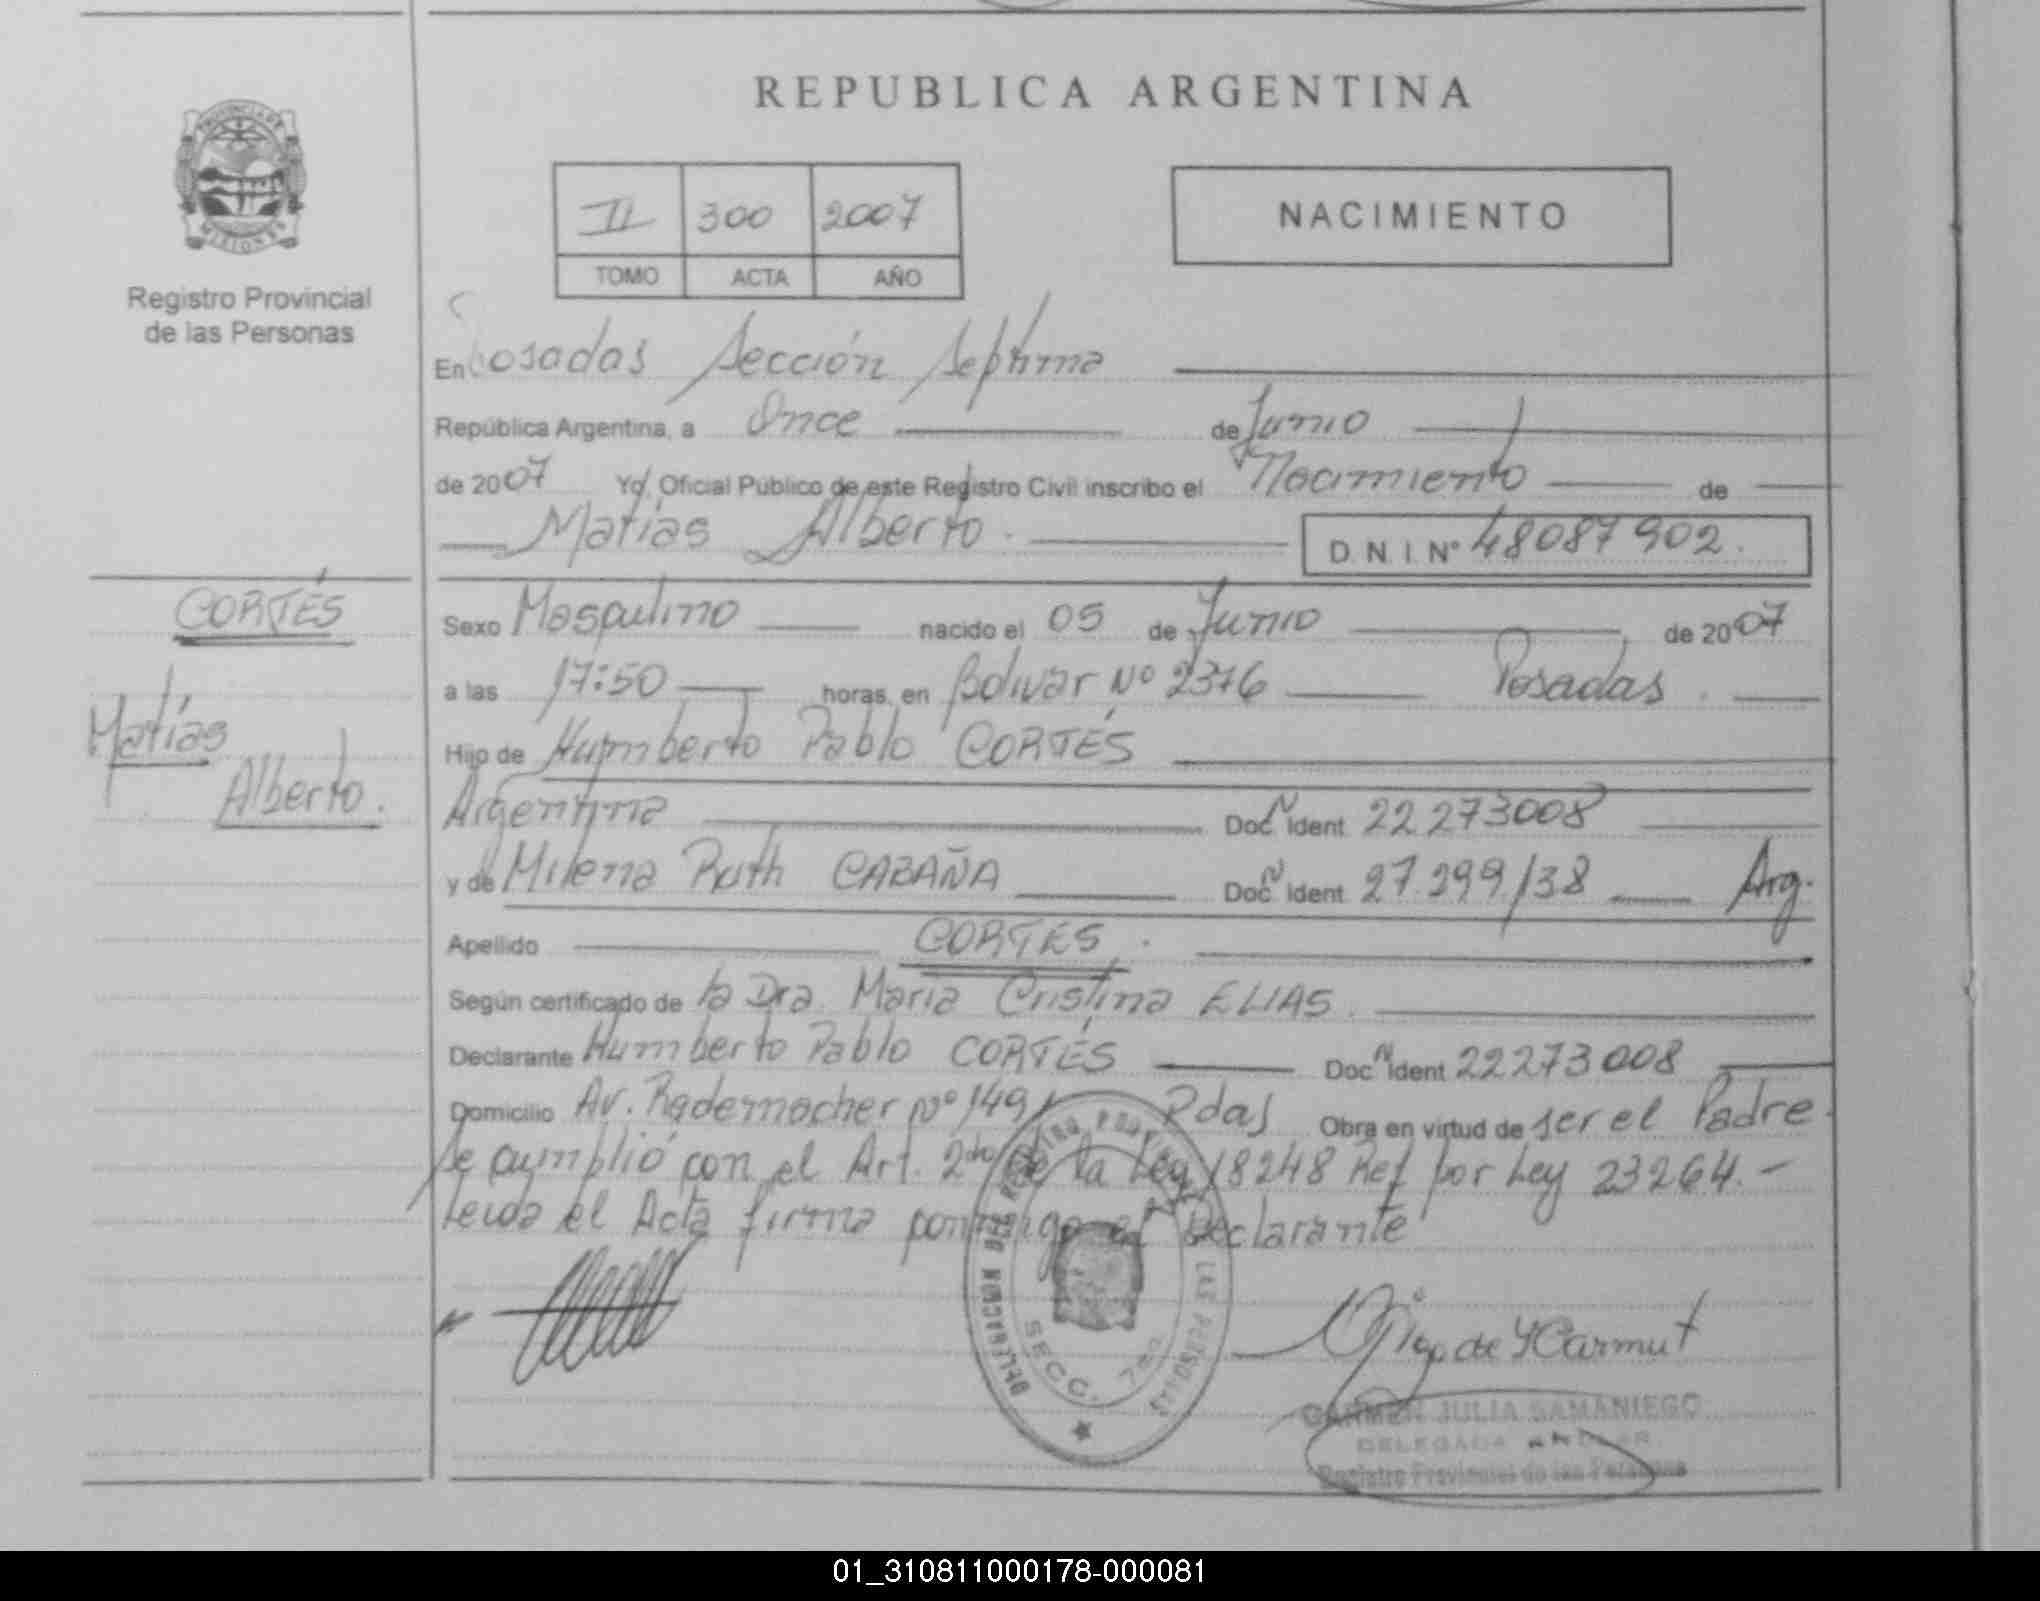 REPUBLICA ARGENTINA
PROVINCIA DE
MISIONES
Registro Provincial
de las Personas
II 300 2007
TOMO ACTA AÑO
NACIMIENTO
En Posadas Sección Septima
República Argentina, a Once de Junio
de 2007 Yo, Oficial Público de este Registro Civil inscribo el Nacimiento de
Matías Alberto. D. N. I. N° 48087902.
CORTÉS
Matías
Alberto.
Sexo Masculino nacido el 05 de Junio de 2007
a las 17:50 horas, en Bolivar Nº 2376 Posadas.
Hijo de Humberto Pablo CORTÉS
Argentina Doc Ident 22273008
y de Milena Ruth CABAÑA Doc Ident 27.299.138 Arg.
Apellido CORTÉS.
Según certificado de la Dra. Maria Cristina ELIAS.
Declarante Humberto Pablo CORTÉS Doc Ident 22273008
Domicilio Av. Rademacher Nº 1491 Pdas Obra en virtud de ser el Padre.
Se cumplió con el Art. 2do de la Ley 18248 Ref por Ley 23264.-
Leida el Acta firma conmigo el Declarante
DELEGACION DEL REGISTRO PROVINCIAL DE LAS PERSONAS
SECC. 7ma
CARMEN JULIA SAMANIEGO
DELEGADA
Registro Provincial de las Personas
01_310811000178-000081